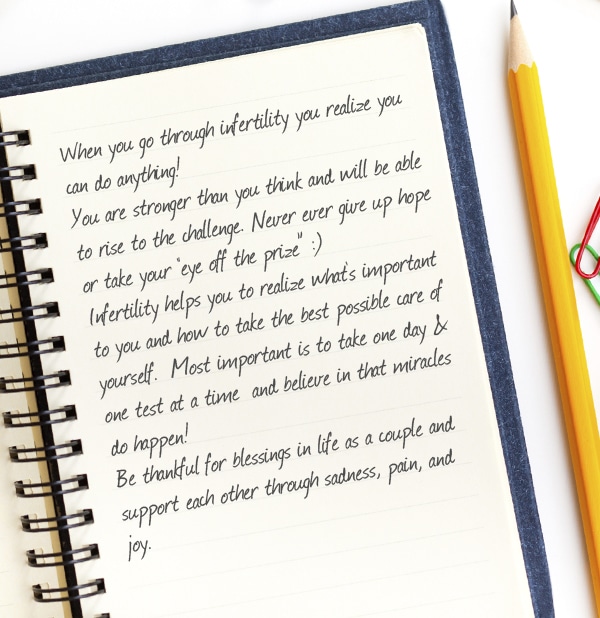 When you go through infertility you realize you
can do anything!
You are stronger than you think and will be able
to rise to the challenge. Never ever give up hope
or take your "eye off the prize" :)
Infertility helps you to realize what's important
to you and how to take the best possible care of
yourself. Most important is to take one day &
one test at a time and believe in that miracles
do happen!
Be thankful for blessings in life as a couple and
support each other through sadness, pain, and
joy.